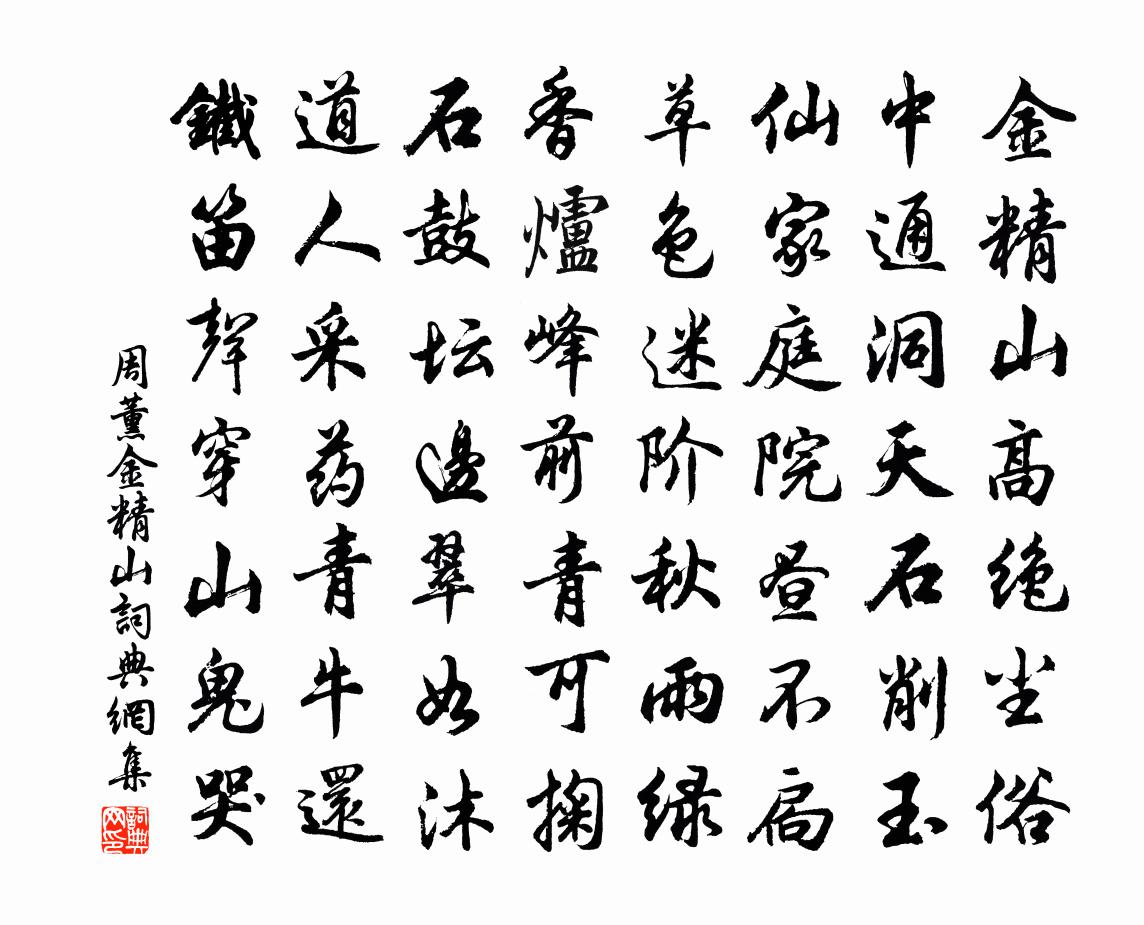 金精山高绝尘俗
中通洞天石削玉
仙家庭院昼不扃
草色迷阶秋雨绿
香爐峰前青可掬
石鼓坛邊翠如沐
道人采药青牛還
鐵笛聲穿山鬼哭
周薰金精山詞典網集
詞典网印